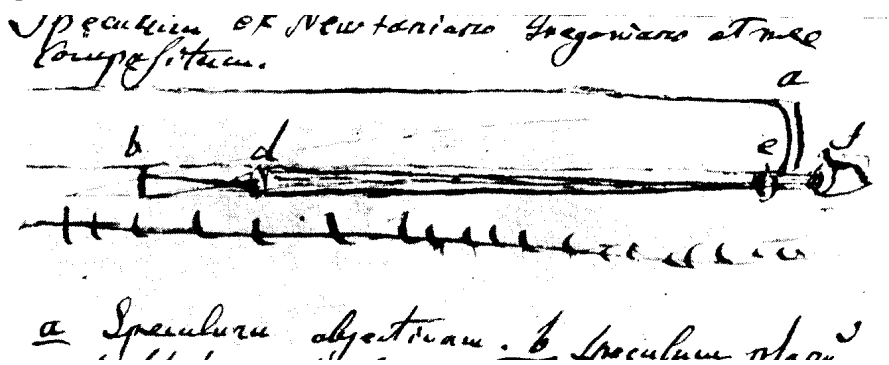 Speculum ex Newtoniano Gregoriano et meo
Compositum.
a
b d e f
a Speculum objectivum. b Speculum planū